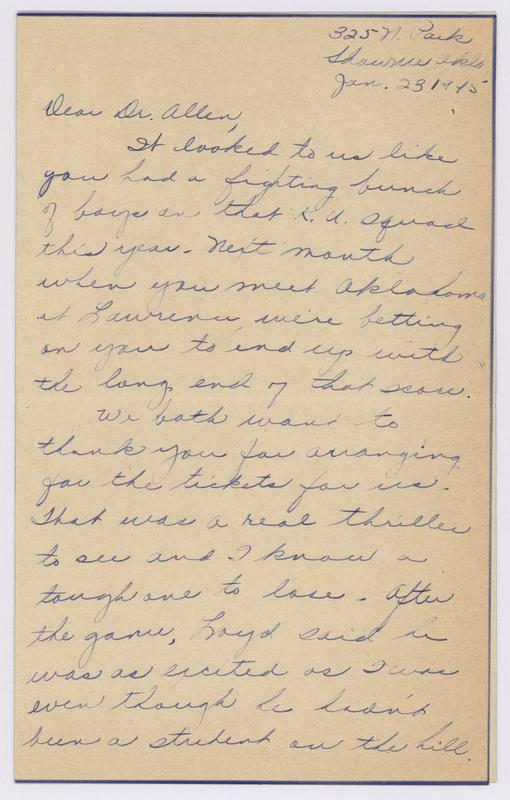 325 N. Park
Shawnee Okla.
Jan. 23 1945
Dear Dr. Allen,
It looked to us like
you had a fighting bunch
of boys on that K. U. squad
this year. Next month
when you meet Oklahoma
at Lawrence, we're betting
on you to end up with
the long end of that score.
We both want to
thank you for arranging
for the tickets for us.
That was a real thriller
to see and I know a
tough one to lose. After
the game, Loyd said he
was as excited as I was
even though he hadn't
been a student on the hill.